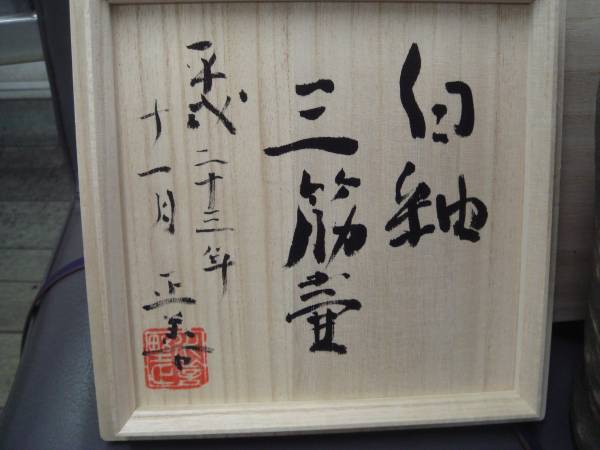 白釉
三筋壷
平成二十三年
十一月 正善